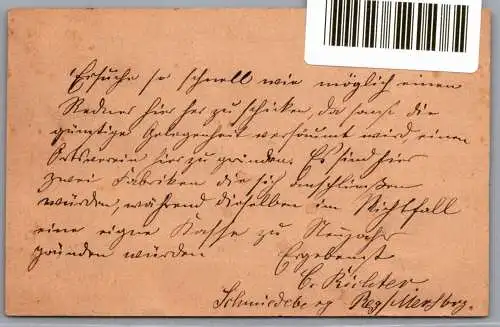 Ersuche so schnell wie möglich einen
Redner hier her zu schicken, da sonst die
günstige Gelegenheit versäumt wird, einen
Ortsverein hier zu gründen. Es sind hier
zwei Fabriken die sich anschlußen
würden, während dieselben im Nichtfall
eine eigne Kasse zu Neujahr
gründen würden Ergebenst
C. Richter
Schmiedeberg Reg/Mersbrg.